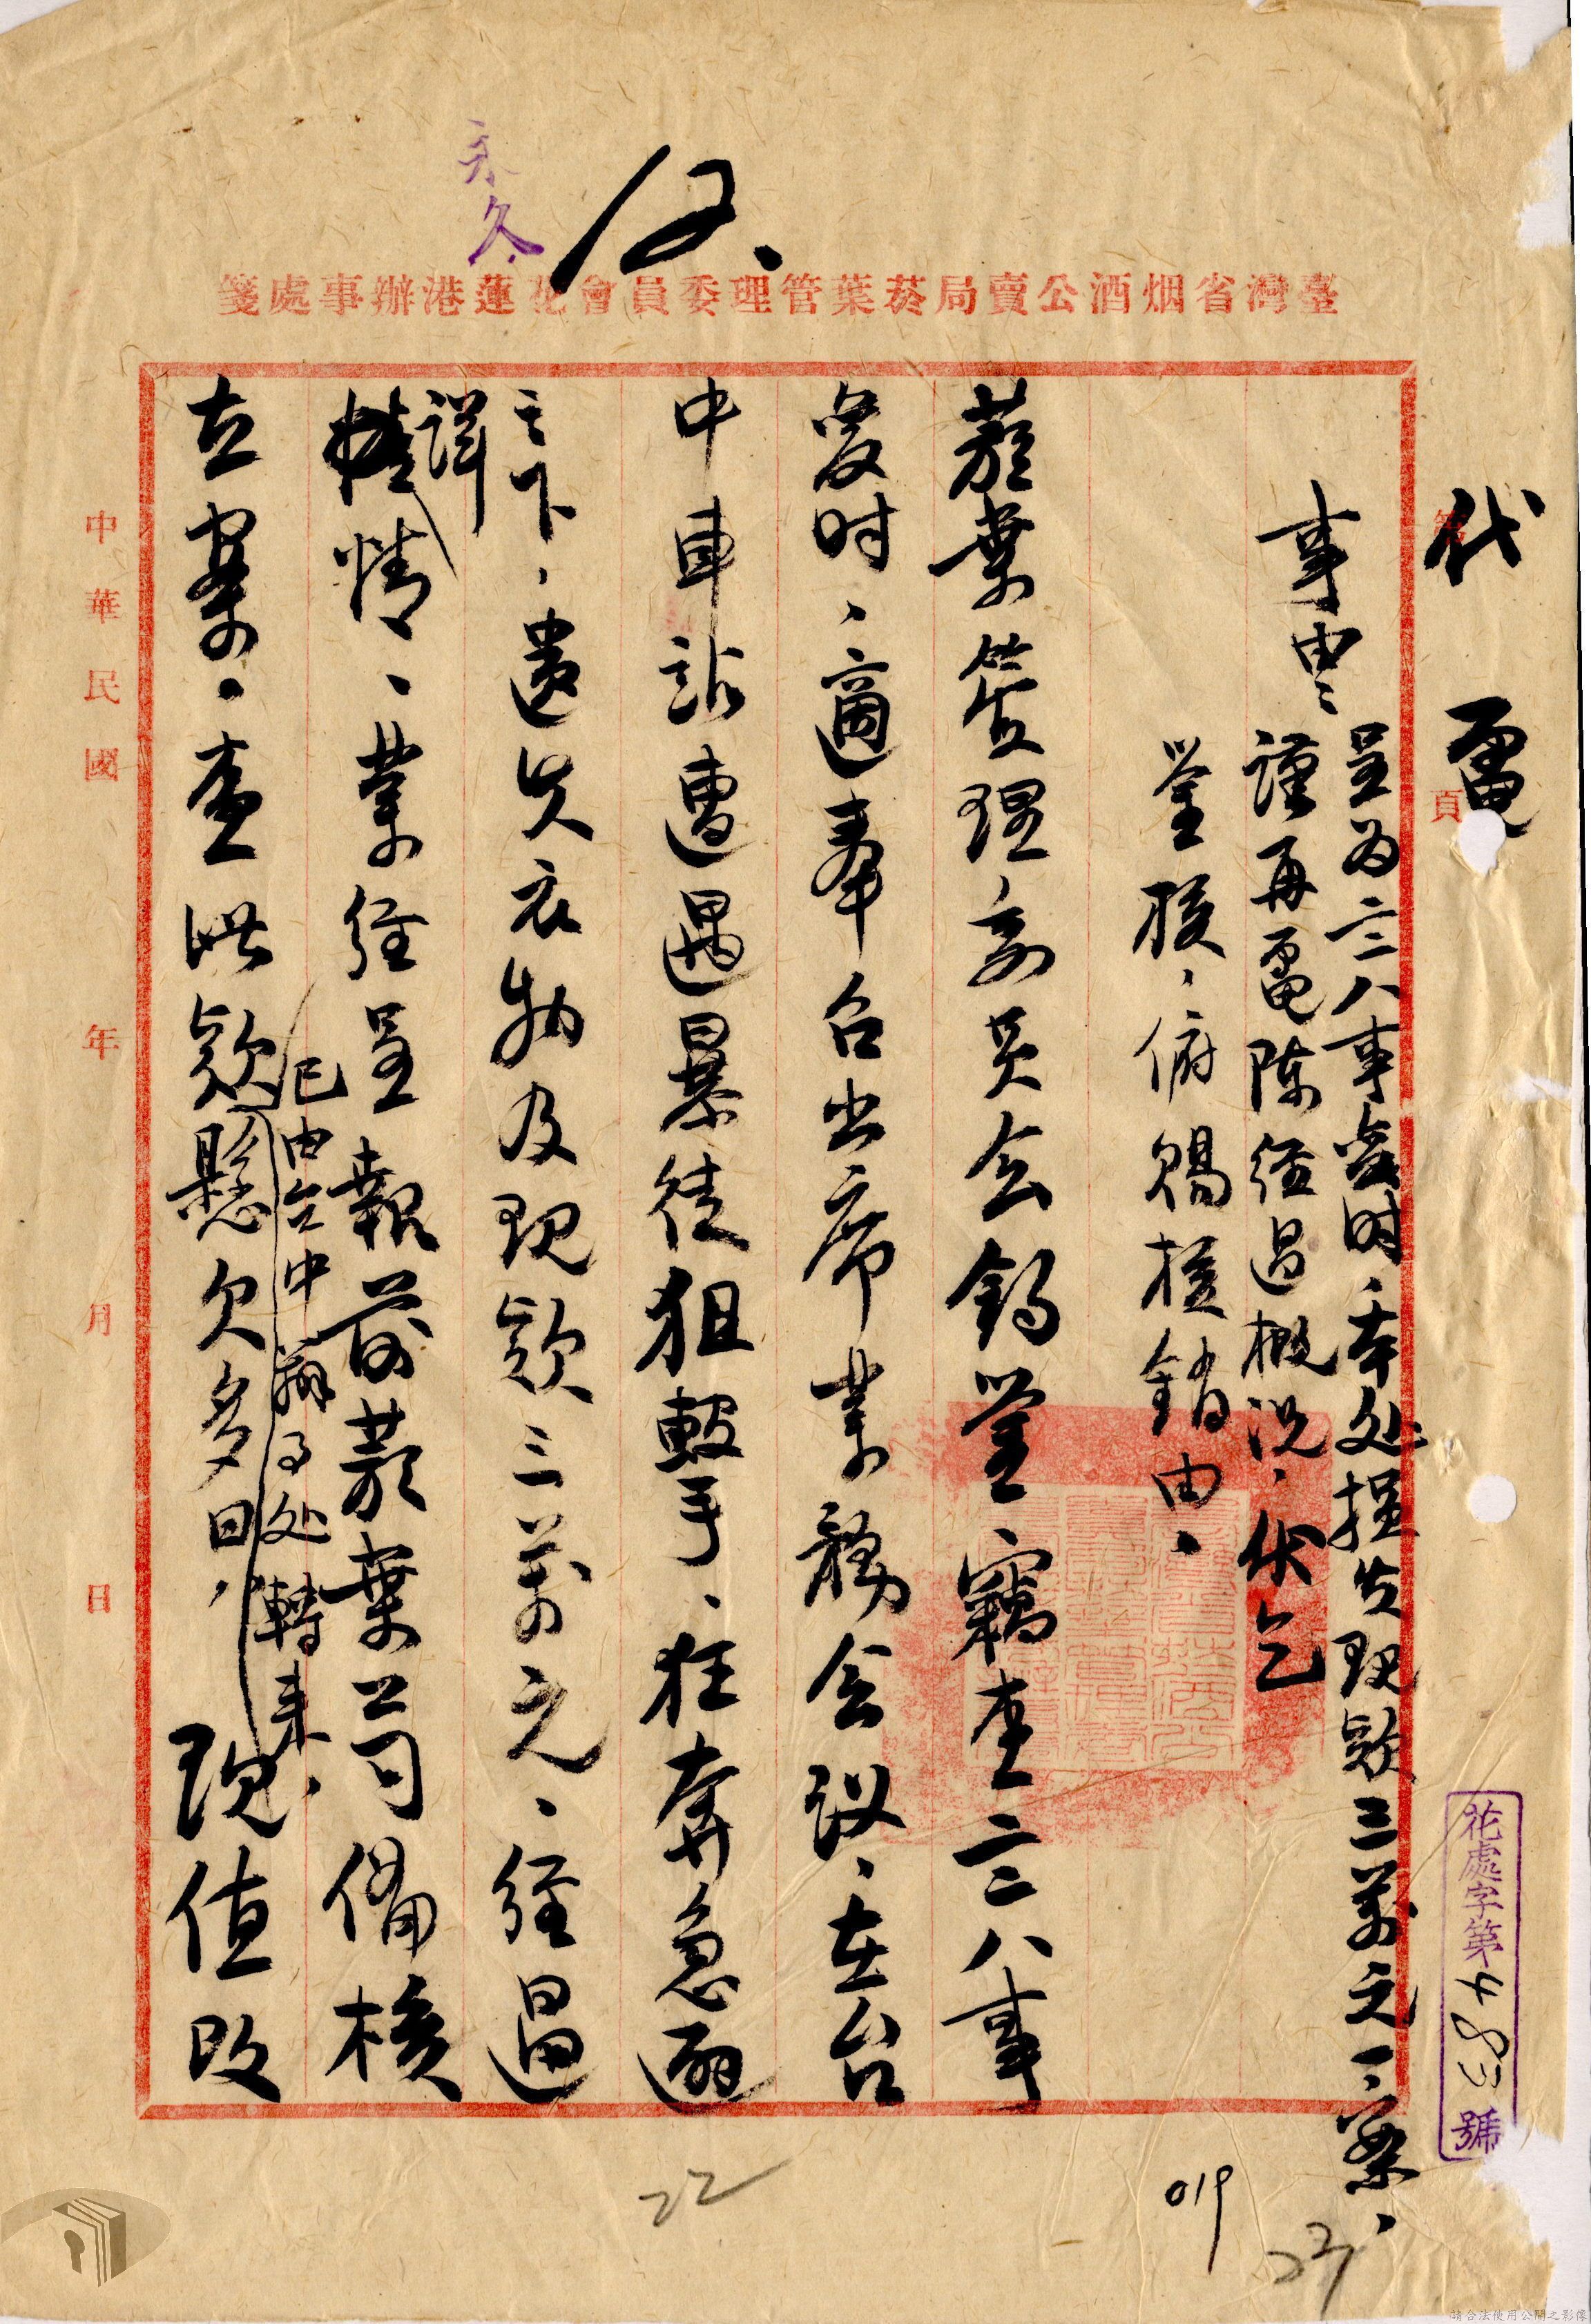 永久
臺灣省烟酒公賣局菸葉管理委員會花蓮港辦事處箋
第 頁
代電
花處字第 號
事由、呈为二二八事变时、本处損失現款三萬元一案、
謹再電陳経过概况、伏乞
鉴核、俯賜核銷由、
菸葉管理委員会鈞鉴、竊查二二八事
变时、適奉召出席業務会议、在台
中車站遭遇暴徒狙擊、狂奔急避
之下、遺失衣物及現款三萬元、経過
詳情、業経呈報前菸葉公司備核
已由台中辦事处轉来、
在案、查此款懸欠多日、現值改
中華民國 年 月 日
019
22
23
請合法使用公開之影像